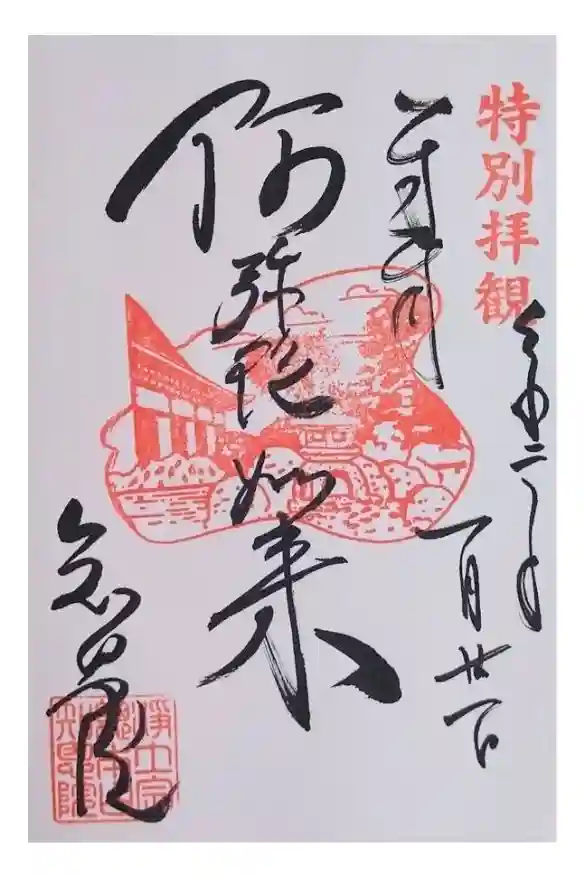 特別拝観
令和二年
一月廿一日
奉拝
阿弥陀如来
知恩院
浄土宗
総本山
知恩院